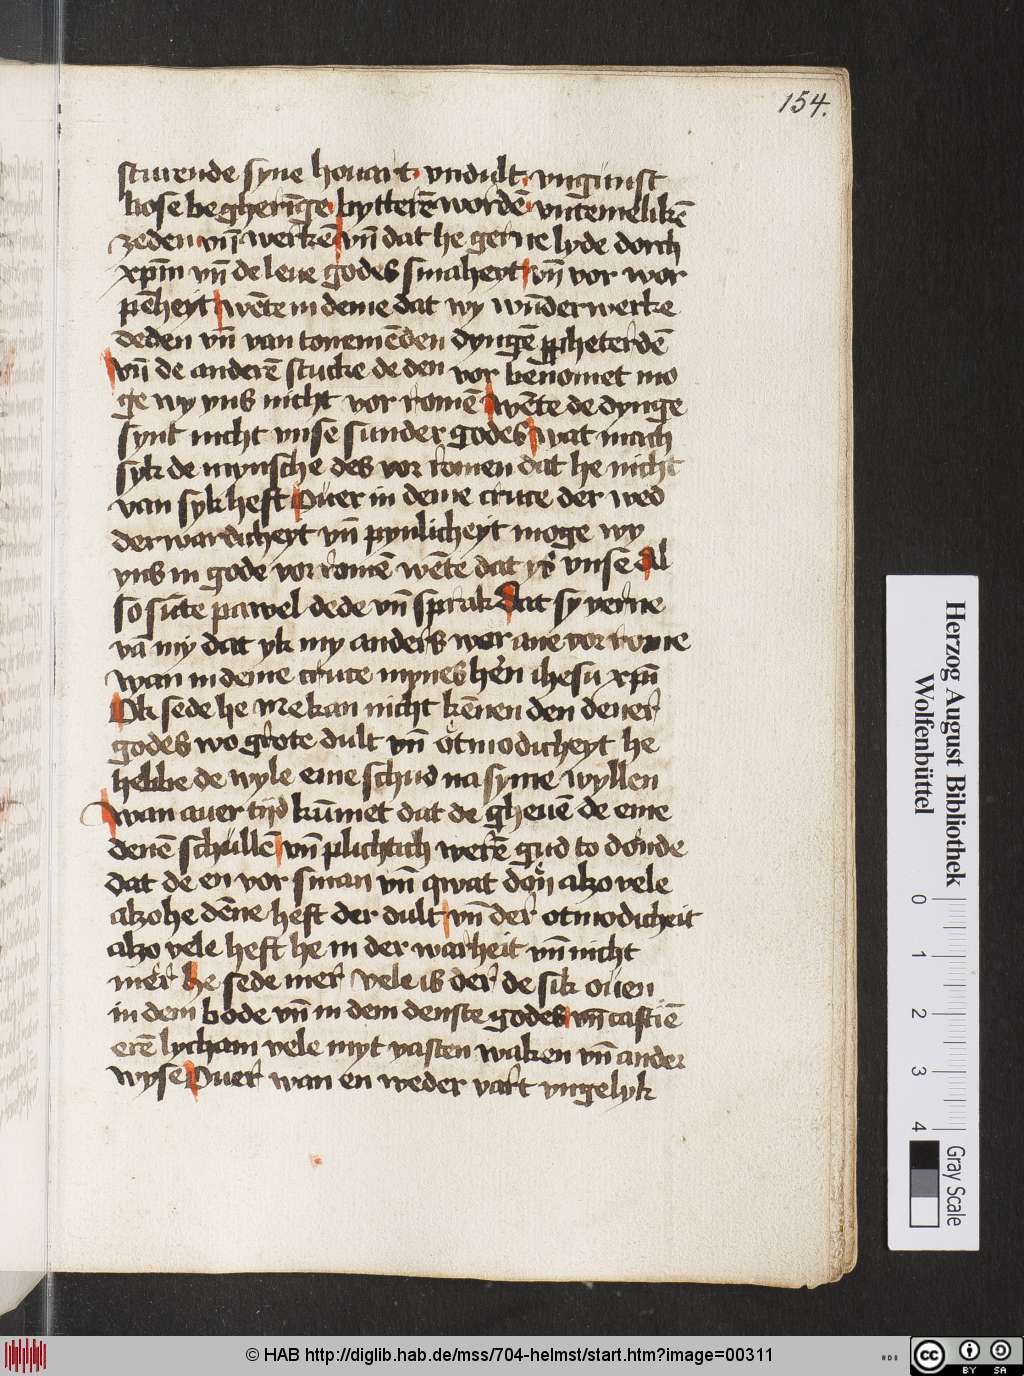 154.
sturende syne houart · vndult · vngunst
bose begheri̅ge · bytterē wordē · vnt̄emelikē
zeden vn̄ werkē vn̄ dat he gerne lyde dorch
xp̄m vn̄ de leue godes smaheyt vn̄ vor wor
pēheyt wēte in deme dat wy wūderwerke
deden vn̄ van tonemēden dyngē ꝓpheterdē
vn̄ de anderē stucke de den vor benomet mo
ge wy vns nicht vor romē wēte de dynge
synt nicht vnse sunder godes wat mach
syk de mynsche des vor romen dat he nicht
van syk heft Ouer in deme cruce der wed
derwardicheyt vn̄ pynlicheyt moge wy
vns in gode vor romē wēte dat ys vnse Al
so sūte pawel dede vn̄ sprak Dat sy verne
vā my dat yk my anders wor ane vor rome
wan in deme cruce mynes hern̄ ihesu xpī
Ok sede he Me kan nicht kēnen den dener
godes wo grote dult vn̄ otmodicheyt he
hebbe de wyle eme schud na syme wyllen
wan auer tijd kūmet dat de gheuē de eme
denē schullē vn̄ plichtich werē gud to donde
dat de en vor sman vn̄ qwat don alzo vele
alzo he dēne heft der dult vn̄ der otmodicheit
alzo vele heft he in der warheit vn̄ nicht
mer he sede mer Vele is der de sik ouen
in dem bode vn̄ in dem denste godes vn̄ castiē
erē lycham vele myt vasten waken vn̄ ander
wyse Ouer wan en weder vart vngelyk
Herzog August Bibliothek
Wolfenbüttel
0 1 2 3 4
Gray Scale
© HAB http://diglib.hab.de/mss/704-helmst/start.htm?image=00311
HAB
CC BY SA